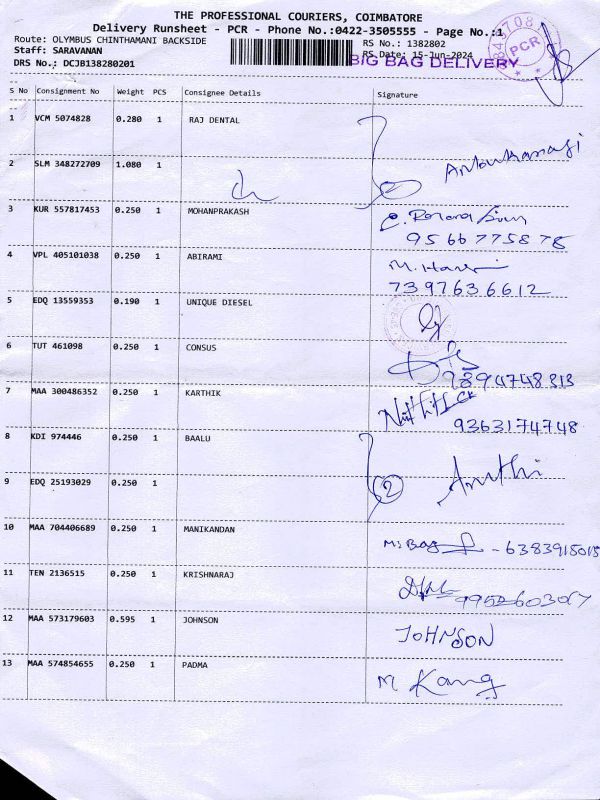 THE PROFESSIONAL COURIERS, COIMBATORE
Delivery Runsheet - PCR - Phone No.:0422-3505555 - Page No.:1
Route: OLYMBUS CHINTHAMANI BACKSIDE
RS No.: 1382802
Staff: SARAVANAN
RS Date: 15-Jun-2024
DRS No.: DCJB138280201
BIG BAG DELIVERY
PCR
S No Consignment No Weight PCS Consignee Details Signature
1 VCM 5074828 0.280 1 RAJ DENTAL
2 SLM 348272709 1.080 1
3 KUR 557817453 0.250 1 MOHANPRAKASH
9566775878
4 VPL 405101038 0.250 1 ABIRAMI M. Hari
7397636612
5 EDQ 13559353 0.190 1 UNIQUE DIESEL
6 TUT 461098 0.250 1 CONSUS
7 MAA 300486352 0.250 1 KARTHIK
9363174748
8 KDI 974446 0.250 1 BAALU
9 EDQ 25193029 0.250 1 2
10 MAA 704406689 0.250 1 MANIKANDAN
11 TEN 2136515 0.250 1 KRISHNARAJ
12 MAA 573179603 0.595 1 JOHNSON JOHNSON
13 MAA 574854655 0.250 1 PADMA M